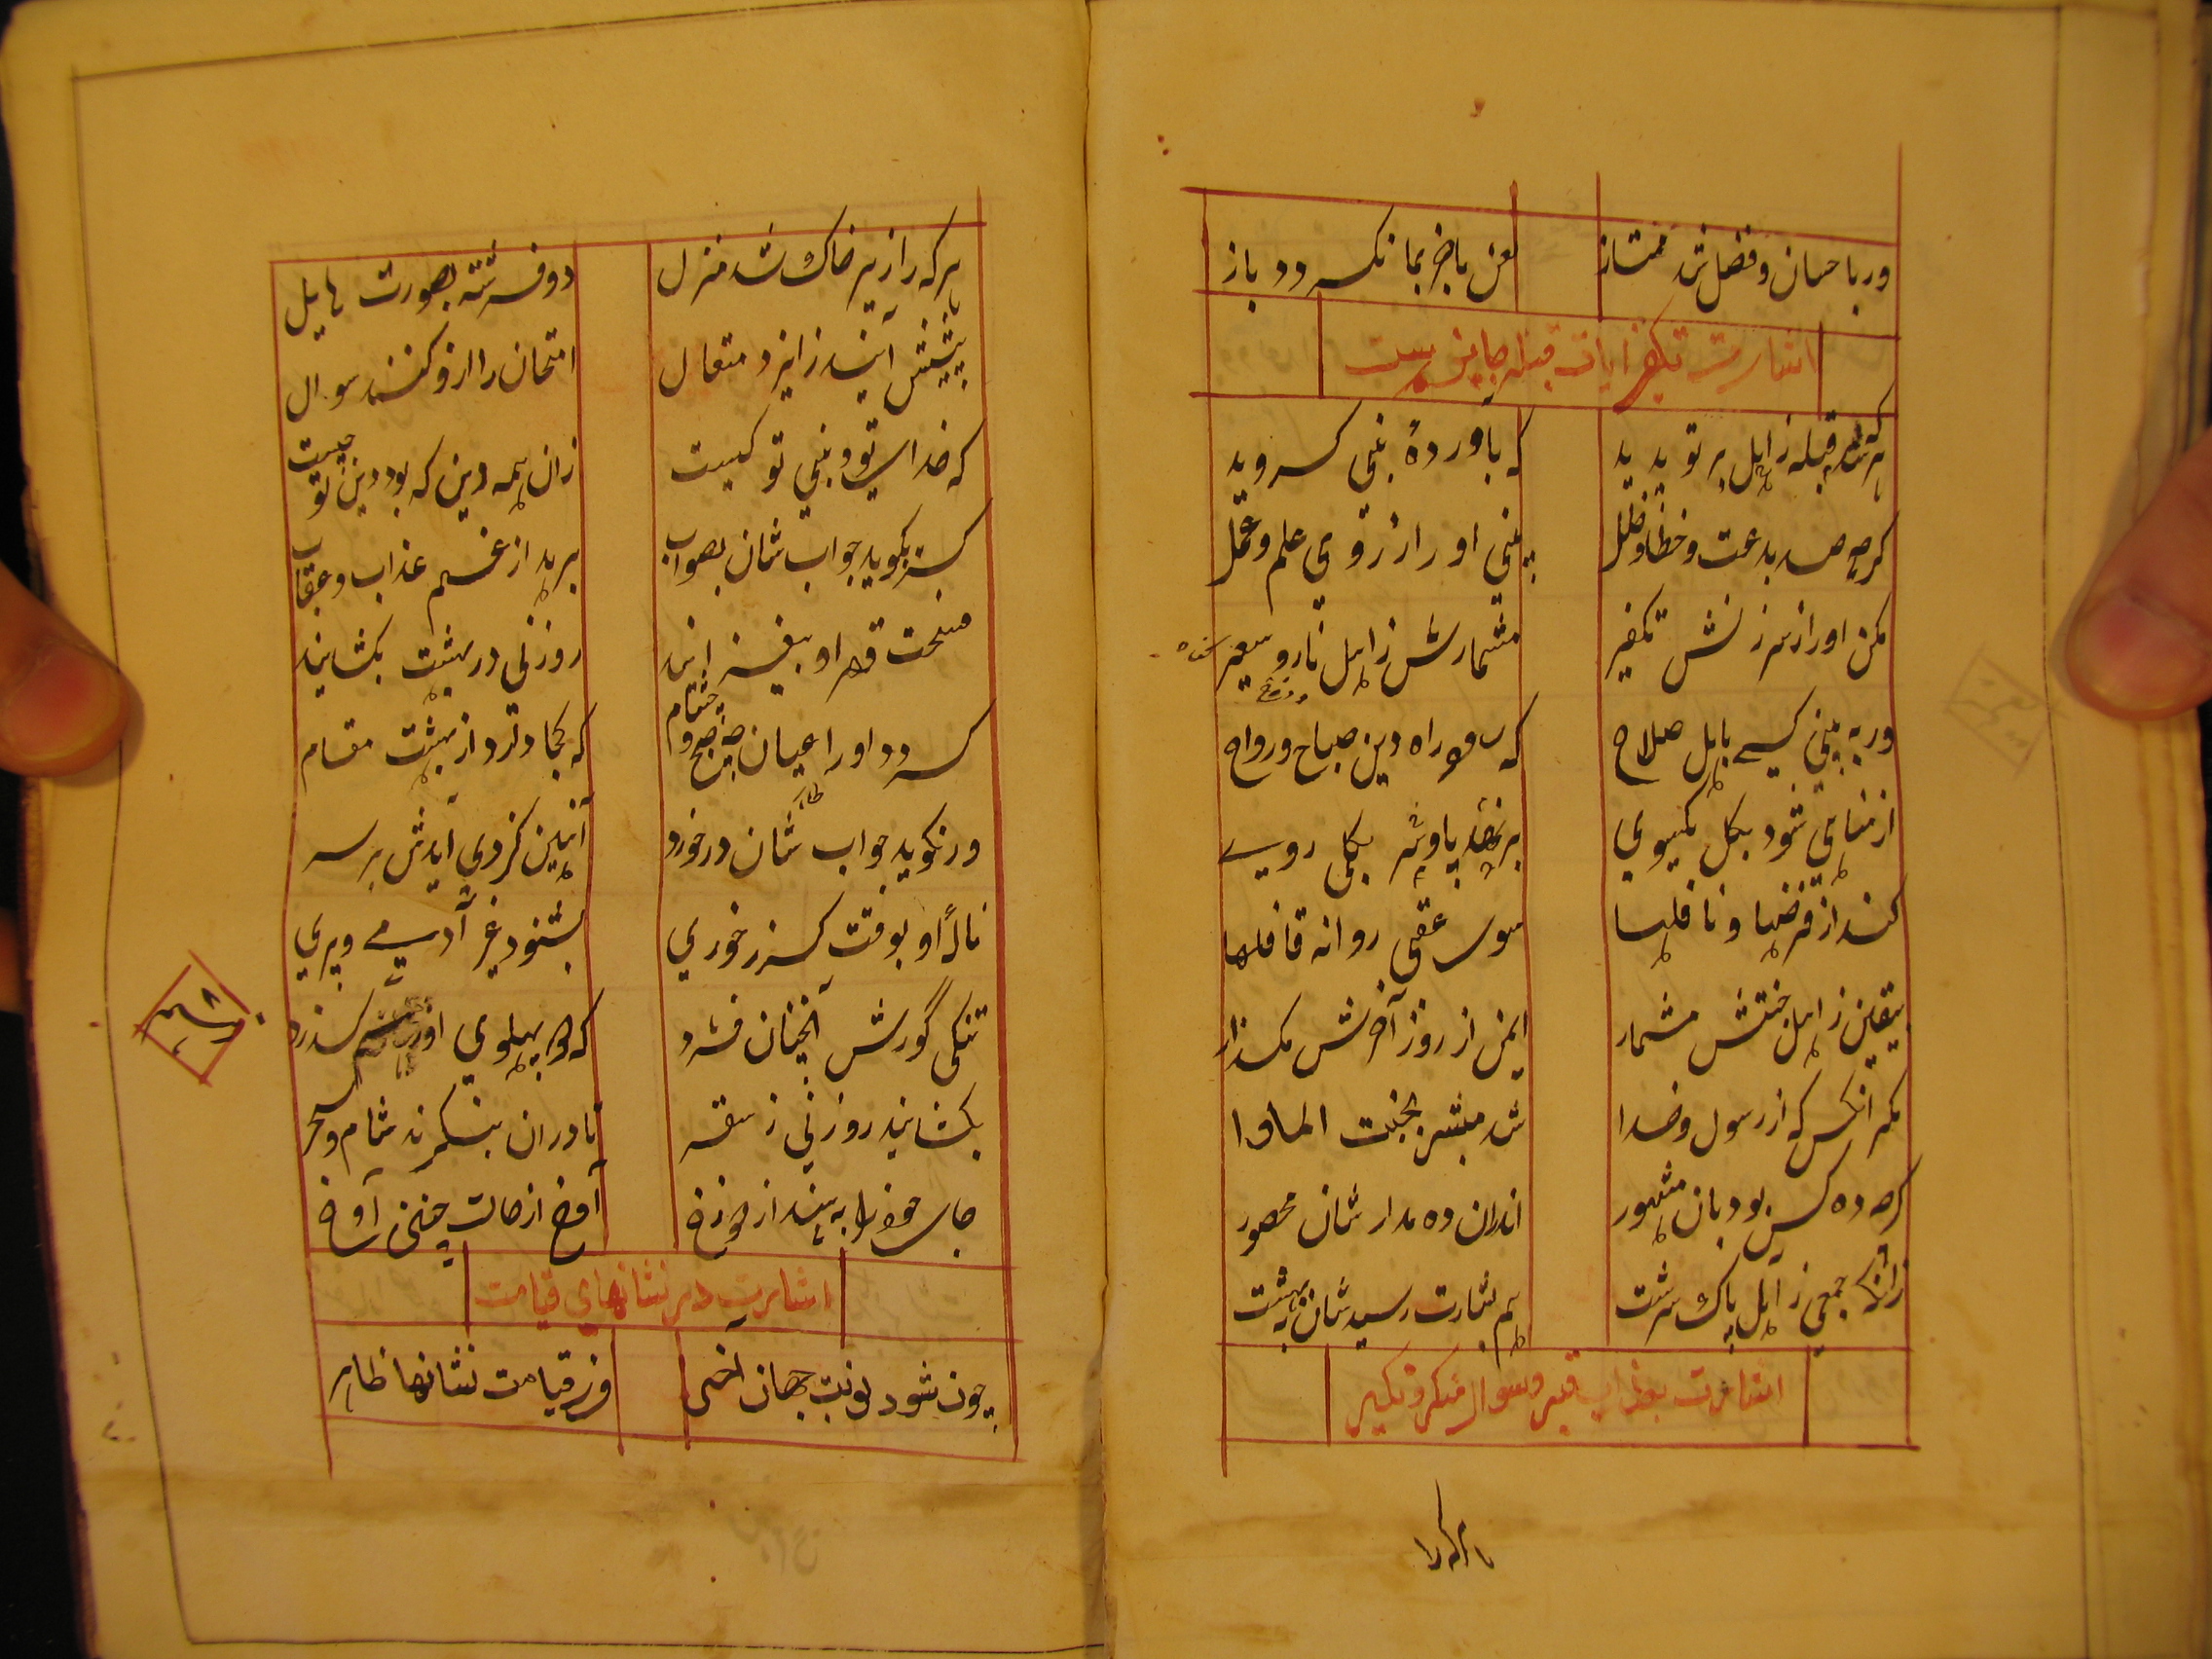 ور باحسان و فضل شد ممتاز لعن ما جز بما نگردد باز
هر که شد قبله ز اهل بر تو پدید که بآورده نبی گروید
گرچه صد بدعت و خطا و خلل بینی او را ز روی علم و عمل
مکن او را ز سرزنش تکفیر مشمارش ز اهل نار و سعیر
دوزخ
ور به بینی کسی باهل صلاح که رود راه دین صباح و رواح
از مناهی شود بکل یکسوی
کند از فرضها و نافلها سوی عقبی روانه قافلها
بیقین ز اهل جنتش مشمار ایمن از روز آخرش مگذار
مگر آنکس که از رسول و خدا شد مبشر بجنت الماوا
گرچه ده کس بود بان مشهور اندران ده مدار شان محصور
زانکه جمعی ز اهل پاک سرشت هم بشارت رسید شان ز بهشت
اشارت بعذاب قبر و سوال منکر و نکیر
هرکه را
هر که را زیر خاک شد منزل دو فرشته بصورت هایل
پیشش آیند ز ایزد متعال امتحان را ازو کنند سوال
که خدای تو و نبی تو کیست زان همه دین که بود دین تو چیست
گر بگوید جواب شان بصواب برهد از غم عذاب و عقاب
فسحت قبر او بیفزایند روزنی در بهشت بگشایند
گردد او را عیان چه صبح و چه شام که کجا دارد از بهشت مقام
ور نگوید جواب شان در خورد
نالهٔ او بوقت گرز خوری بشنود غیر آدمی و پری
تنگی گورش آنچنان فشرد که
بگشایند روزنی ز سقر تا دران بنگرند شام و سحر
جای خود را به بیند از دوزخ آوخ از حالت چنین آوخ
اشارت در نشانهای قیامت
چون شود نوبت جهان آخر وز قیامت نشانها ظاهر